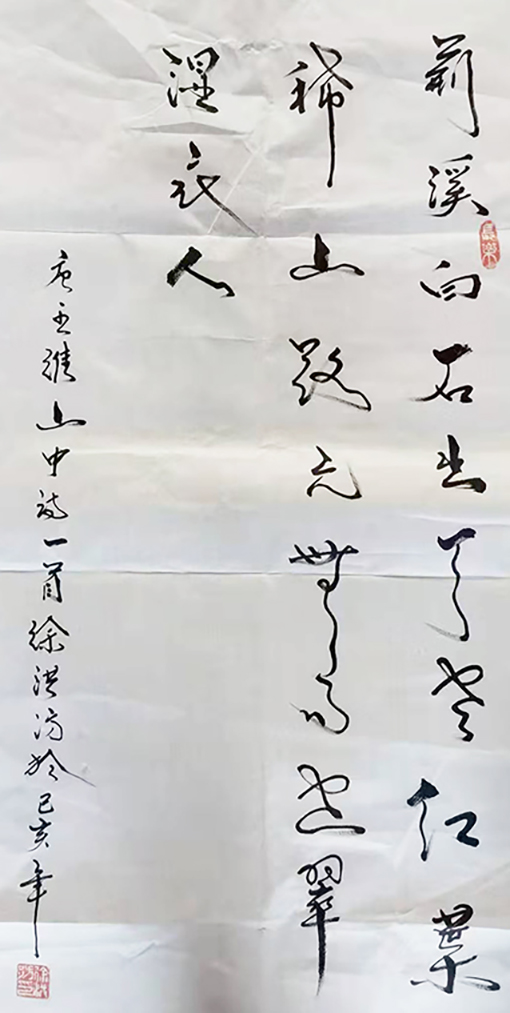 荆溪白石出天寒红葉
稀山路元無雨空翠
濕衣人
唐王維山中詩一首徐洪涛於己亥年